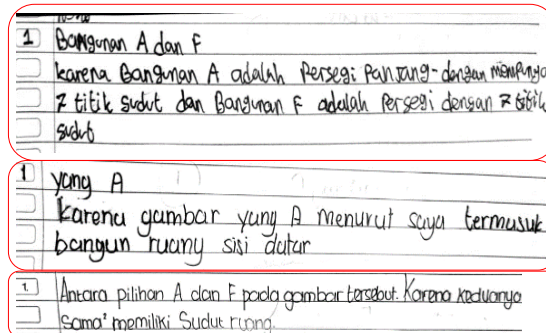 1 Bangunan A dan F
karena Bangunan A adalah Persegi Panjang - dengan mempunya
7 titik sudut dan Bangunan F adalah Persegi dengan 7 titik
sudut
1 yang A
Karena gambar yang A menurut saya termasuk
bangun ruang sisi datar
1. Antara pilihan A dan F pada gambar tersebut. Karena keduanya
sama² memiliki Sudut ruang.